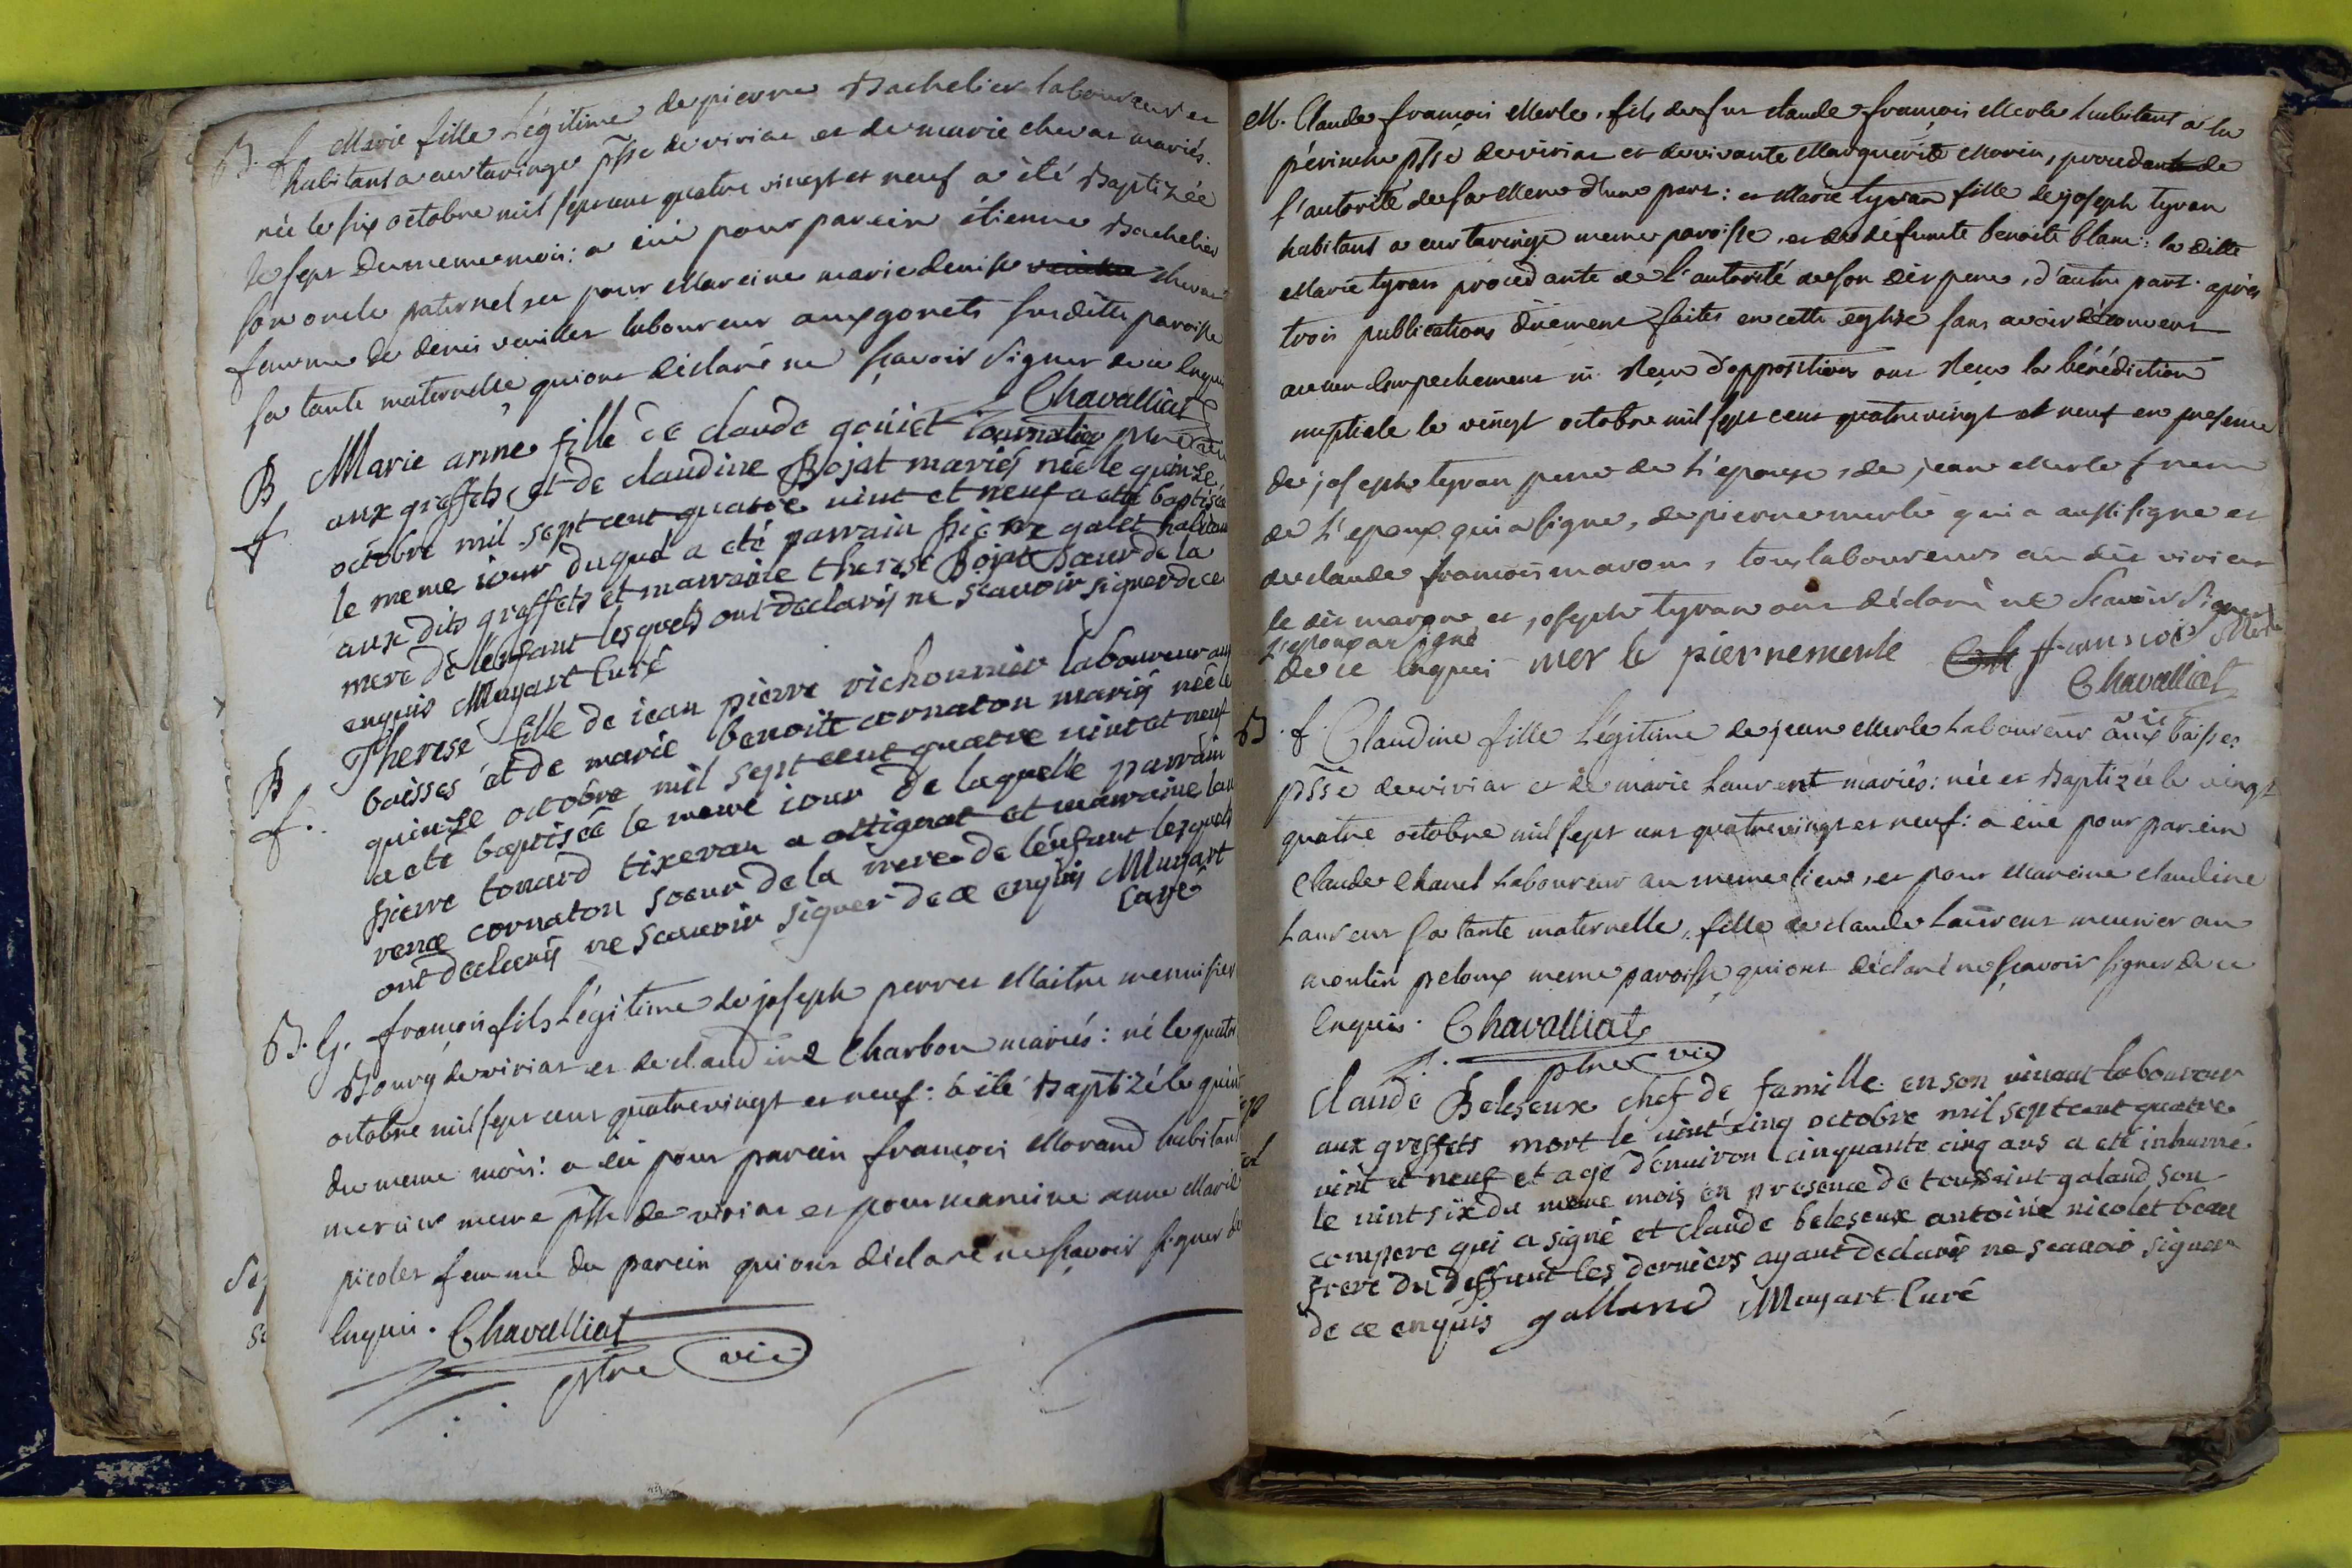 B. f. Marie fille Légitime de pierre Bachelier laboureur et
habitant a curtaringe psse de viriat et de marie chevat mariés.
née le six octobre mil sept cent quatre vingt et neuf a été Baptizée
le sept du meme mois: a eu pour parein étienne Bachelier
son oncle paternel et pour Mareine marie denise chevat
femme de denis veuillet laboureur aux gonets susditte paroisse
sa tante maternelle qui ont déclaré ne sçavoir signer de ce Enquis
Chavalliat
B Marie anne fille de claude goüiet iournalier
f aux greffets et de claudine Bojat mariés née le quinze
octobre mil sept cent quatre vint et neuf a été baptisée
le meme iour duqué a eté parrain pierre galet habitant
aux dits greffets et marraine therese Bojat sœur de la
mere de l'enfant lesquels ont declarés ne scavoir signer de ce
enquis Muyart Curé
B Therese fille de iean pierre vichonnier laboureur aux
f. baisses et de marie benoite cornaton mariés née le
quinze octobre mil sept cent quatre vint et neuf
a eté baptisée le meme iour de laquelle parrain
pierre tonard tixeran a attignat et marraine lau
rence cornaton soeur de la mere de l'enfant lesquels
ont declarés ne scavoir signer de ce enquis Muyart
Curé
B. G. françois fils Légitime de joseph perret Maitre menuisier
Bourg de viriat et de claudine Charbon mariés: né le quatre
octobre mil sept cent quatre vingt et neuf: a été Baptizé le quint
du meme mois: a eu pour parein françois Morand habitant
mercier meme psse de viriat et pour mareine anne Marie
picolet femme du parein qui ont déclaré ne sçavoir signer de
Enquis. Chavalliat
ptre vic
M. Claude françois Merle, fils de fut claude françois Merle habitant a la
périnche psse de viriat et de vivante Marguerite Morin, procedant de
l'autorité de sa Mere d'une part: et Marie tyvan fille de joseph tyvan
habitant a curtaringe meme paroisse, et de défunte benoite blanc: la ditte
Marie tyvan procedante de l'autorité de son dit pere, d'autre part. après
trois publications düement faites en cette église sans avoir découvert
aucun Empechement ni Reçu d'opposition ont Reçu la bénédiction
nuptiale le vingt octobre mil sept cent quatre vingt et neuf en presence
de joseph tyvan pere de l'epouse, de jean Merle frere
de l'epoux qui a signé, de pierre merle qui a aussi signé et
de claude françois maron, tous laboureurs au dit viriat
le dit maron et joseph tyvan ont déclaré ne Scavoir Signer
L'epoux a signé
de ce Enquis mer le pierremerle françois Merle
Chavalliat
vic
B. f. Claudine fille Légitime de jean Merle Laboureur aux baisses
psse de viriat et de marie Laurent mariés: née et Baptizée le vingt
quatre octobre mil sept cent quatre vingt et neuf: a eue pour parein
Claude Chanel Laboureur au meme lieu, et pour Mareine claudine
Laurent sa tante maternelle, fille de claude Laurent meunier au
moulin peloux meme paroisse, qui ont déclaré ne sçavoir signer de ce
Enquis. Chavalliat
ptre vic
Claude Beleseux chef de famille en son vivant laboureur
aux greffets mort le vint cinq octobre mil sept cent quatre
vint et neuf et agé d'environ cinquante cinq ans a eté inhumé
le vint six du meme mois en presence de toussaint galand son
compere qui a signé et claude beleseux antoine nicolet beau
frere du deffunt les derniers ayant declarés ne scavoir signer
de ce enquis galland Muyart Curé